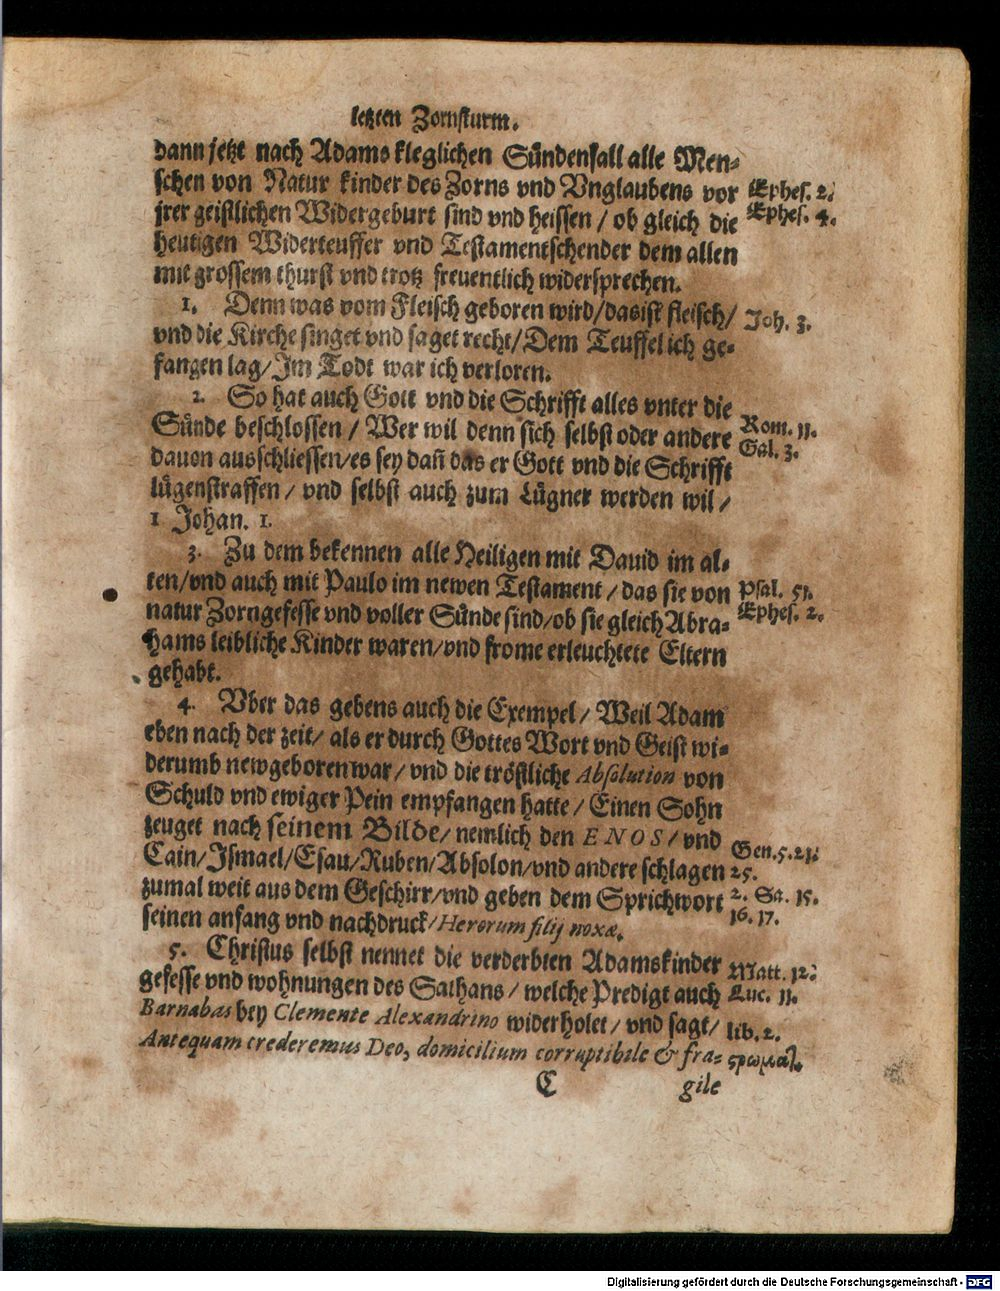 letzten Zornsturm.
dann jetzt nach Adams kleglichen Sündenfall alle Men-
schen von Natur kinder des Zorns vnd Vnglaubens vor
jrer geistlichen Widergeburt sind vnd heissen / ob gleich die
heutigen Widerteuffer vnd Testamentschender dem allen
mit grossem thurst vnd trotz freuentlich widersprechen.
Ephes. 2.
Ephes. 4.
1. Denn was vom Fleisch geboren wird / das ist fleisch /
vnd die Kirche singet vnd saget recht / Dem Teuffel ich ge-
fangen lag / Im Todt war ich verloren.
Joh. 3.
2. So hat auch Gott vnd die Schrifft alles vnter die
Sünde beschlossen / Wer wil denn sich selbst oder andere
dauon ausschliessen / es sey dañ das er Gott vnd die Schrifft
lügenstraffen / vnd selbst auch zum Lügner werden wil /
1 Johan. 1.
Rom. 11.
Gal. 3.
3. Zu dem bekennen alle Heiligen mit Dauid im al-
ten / vnd auch mit Paulo im newen Testament / das sie von
natur Zorngefesse vnd voller Sünde sind / ob sie gleich Abra-
hams leibliche Kinder waren / vnd frome erleuchtete Eltern
gehabt.
Psal. 51.
Ephes. 2.
4. Vber das gebens auch die Exempel / Weil Adam
eben nach der zeit / als er durch Gottes Wort vnd Geist wi-
derumb newgeboren war / vnd die tröstliche Absolution von
Schuld vnd ewiger Pein empfangen hatte / Einen Sohn
zeuget nach seinem Bilde / nemlich den ENOS / vnd
Cain / Ismael / Esau / Ruben / Absolon / vnd andere schlagen
zumal weit aus dem Geschirr / vnd geben dem Sprichwort
seinen anfang vnd nachdruck / Heroum filij noxæ.
Gen. 5. 21.
25.
2. Sa. 15.
16. 17.
5. Christus selbst nennet die verderbten Adamskinder
gefesse vnd wohnungen des Sathans / welche Predigt auch
Barnabas bey Clemente Alexandrino widerholet / vnd sagt /
Antequam crederemus Deo, domicilium corruptibile & fra-
Matt. 12.
Luc. 11.
lib. 2.
ςρωματ.
C gile
Digitalisierung gefördert durch die Deutsche Forschungsgemeinschaft - DFG